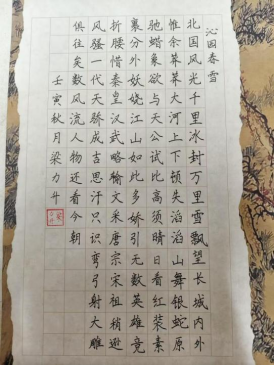 沁园春雪
北国风光千里冰封万里雪飘望长城内外
惟余莽莽大河上下顿失滔滔山舞银蛇原
驰蜡象欲与天公试比高须晴日看红装素
裹分外妖娆江山如此多娇引无数英雄竞
折腰惜秦皇汉武略输文采唐宗宋祖稍逊
风骚一代天骄成吉思汗只识弯弓射大雕
俱往矣数风流人物还看今朝
壬寅秋月梁力升